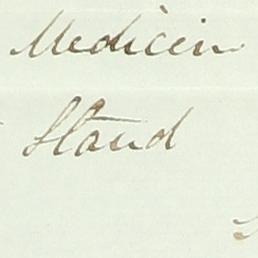 Medicin
Stand